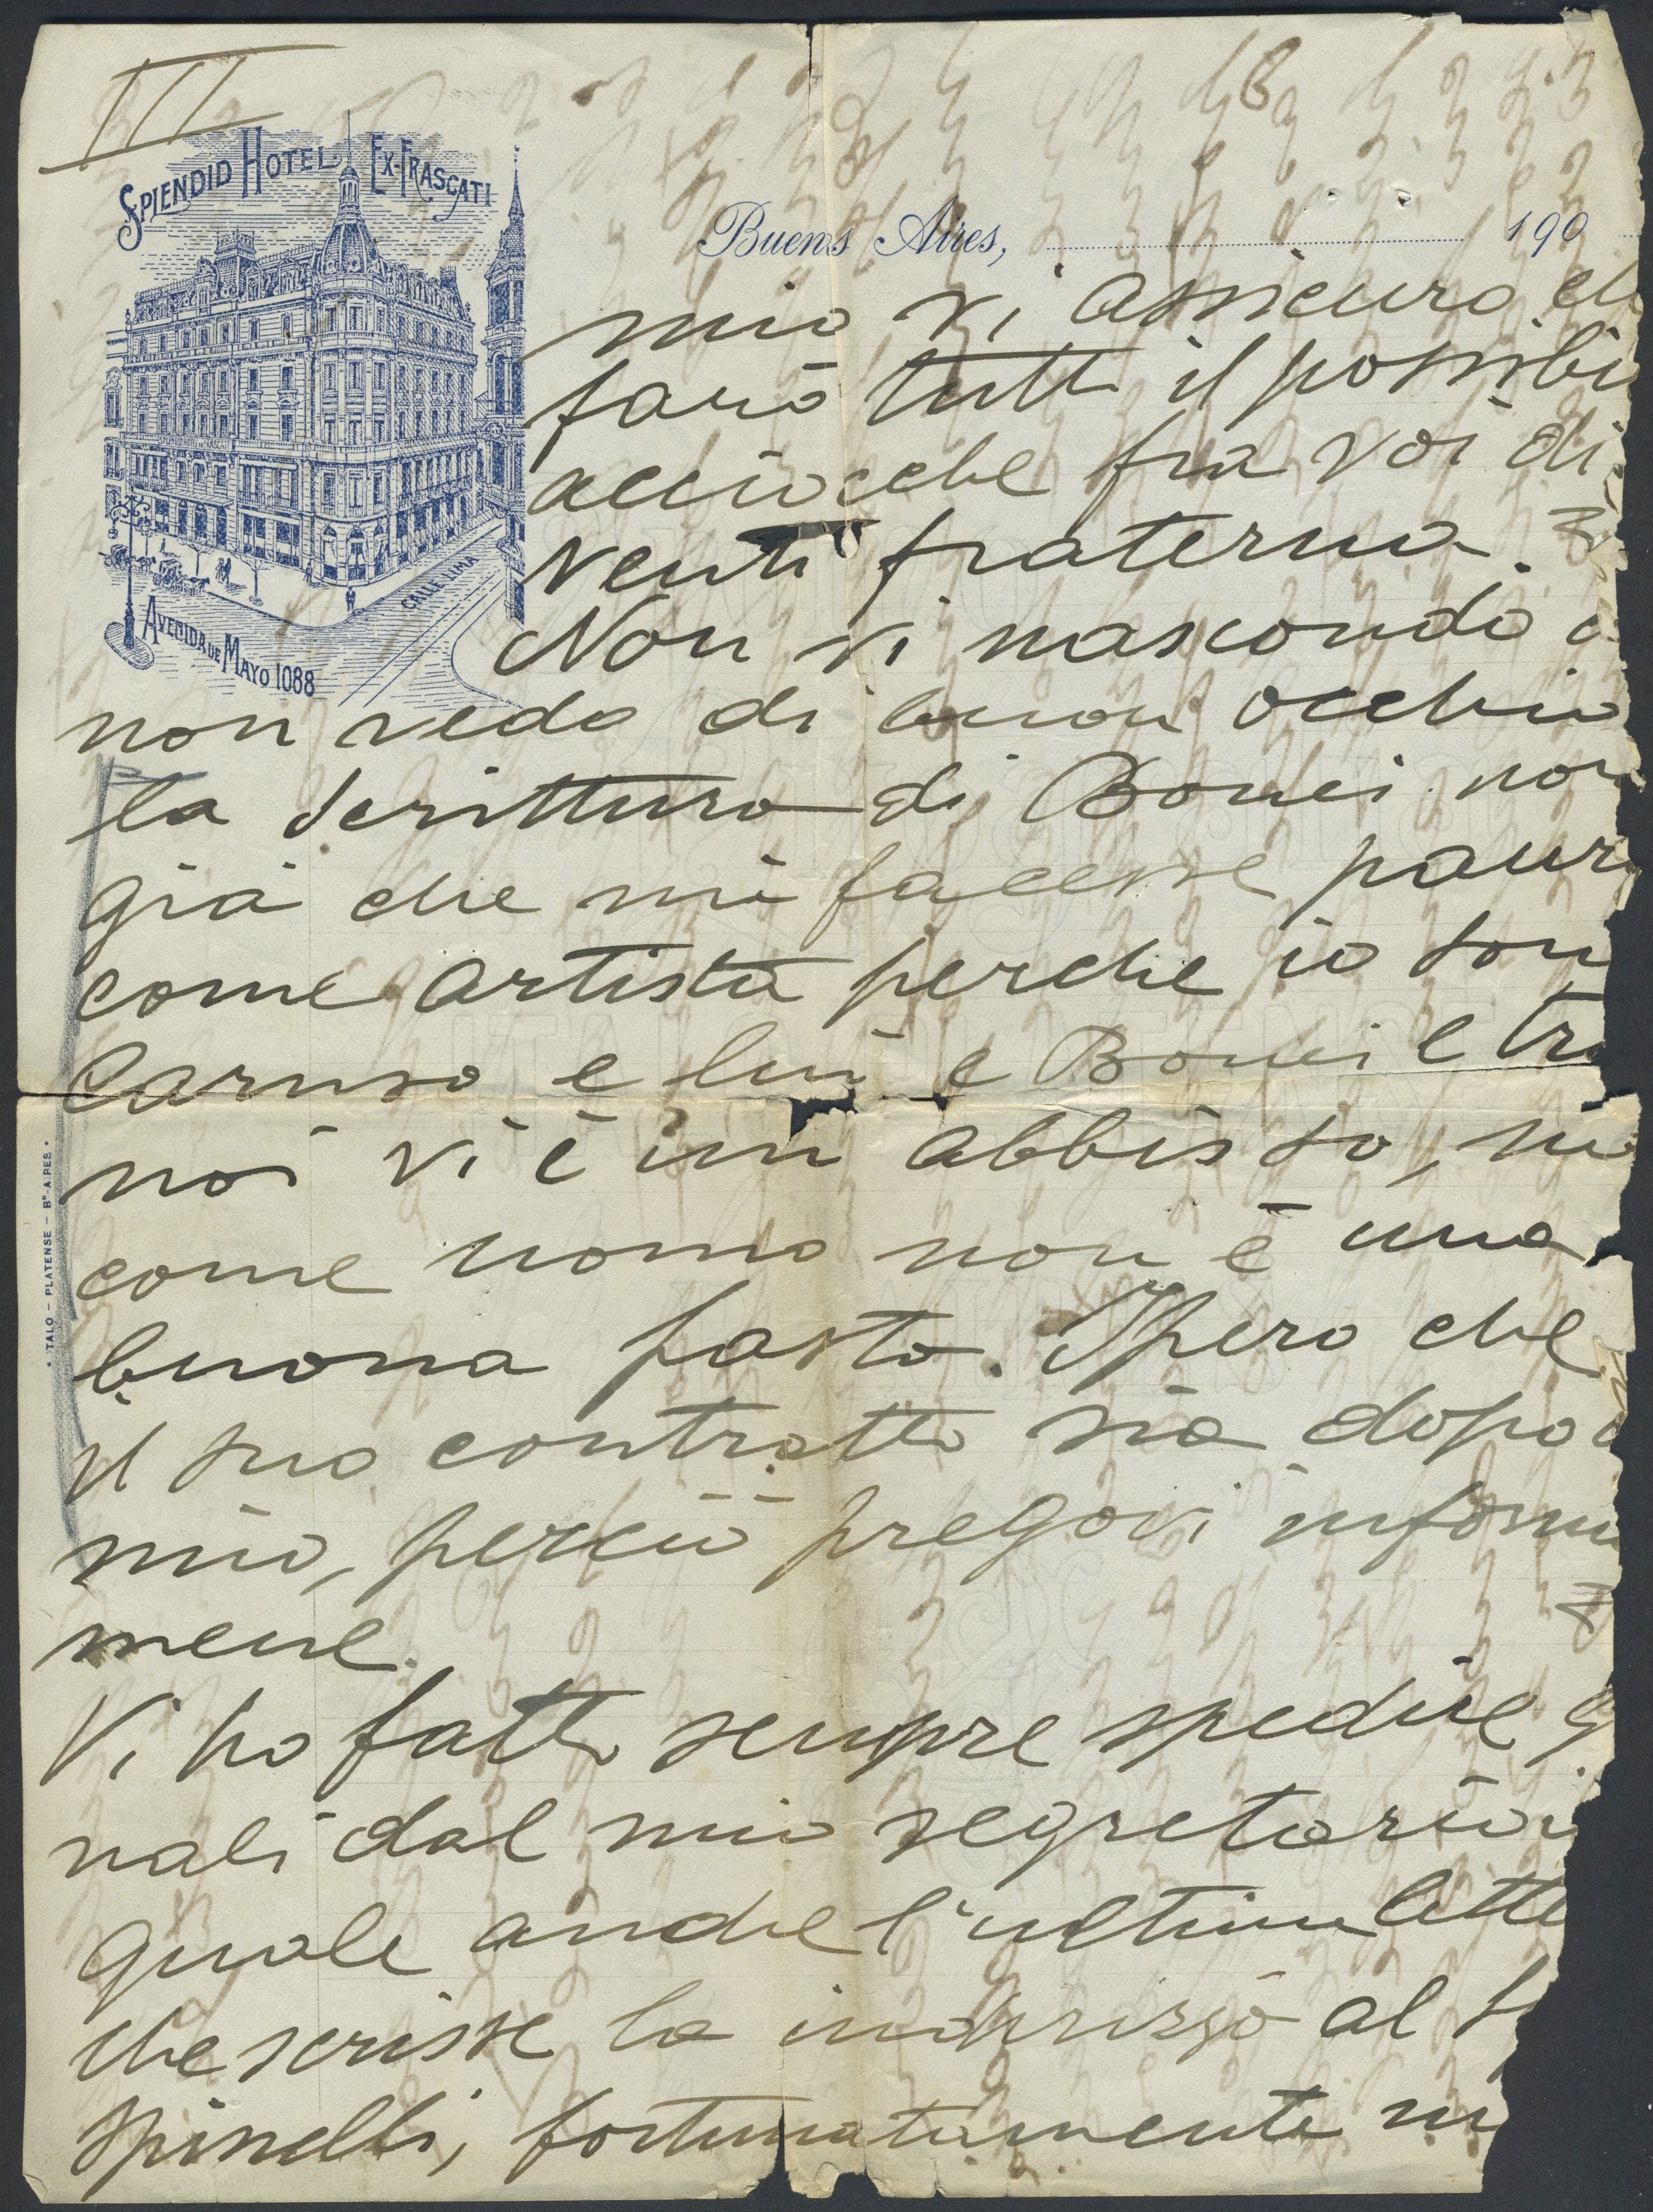 III
SPLENDID HOTEL EX-FRASCATI
Buenos Aires, 190
CALLE LIMA
AVENIDA DE MAYO 1088
mio vi assicuro ch
farò tutto il possibi
acciocche fra voi di
venti fraterna.
Non vi nascondo c
non vedo di buon occhio
la scrittura di Bonci non
già che mi facesse paur
come artista perche io son
Caruso e lui è Bonci e tra
noi vi è un abbisso, ma
come uomo non è una
buona pasta. Spero che
il suo contratto sia dopo
mio, perciò pregovi inform
mene.
Vi ho fatto sempre spedire g
nali dal mio segretario
quale anche l'ultima lette
che scrisse la indirizzò al S
Spinelli, fortunatamente
• ITALO – PLATENSE – Bs AIRES •